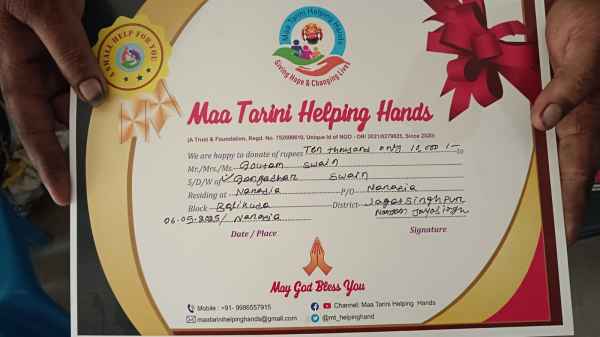 Maa Tarini Helping Hands
Giving Hope & Changing Lives
A SMALL HELP FOR YOU
Maa Tarini Helping Hands
(A Trust & Foundation, Regd. No. 752600610, Unique Id of NGO - OR/ 2021/0279835, Since 2020)
We are happy to donate of rupees Ten thousand only 10,000 /- to
Mr./Mrs./Ms. Goutam Swain
S/D/W of Gangadhar Swain
Residing at Nanasia P/O Nanasia
Block Balikuda District Jagatsinghpur
06-05-2025/ Nanasia
Date / Place Signature
May God Bless You
Mobile : +91- 9986557915 Channel: Maa Tarini Helping Hands
maatarinihelpinghands@gmail.com @mt_helpinghand